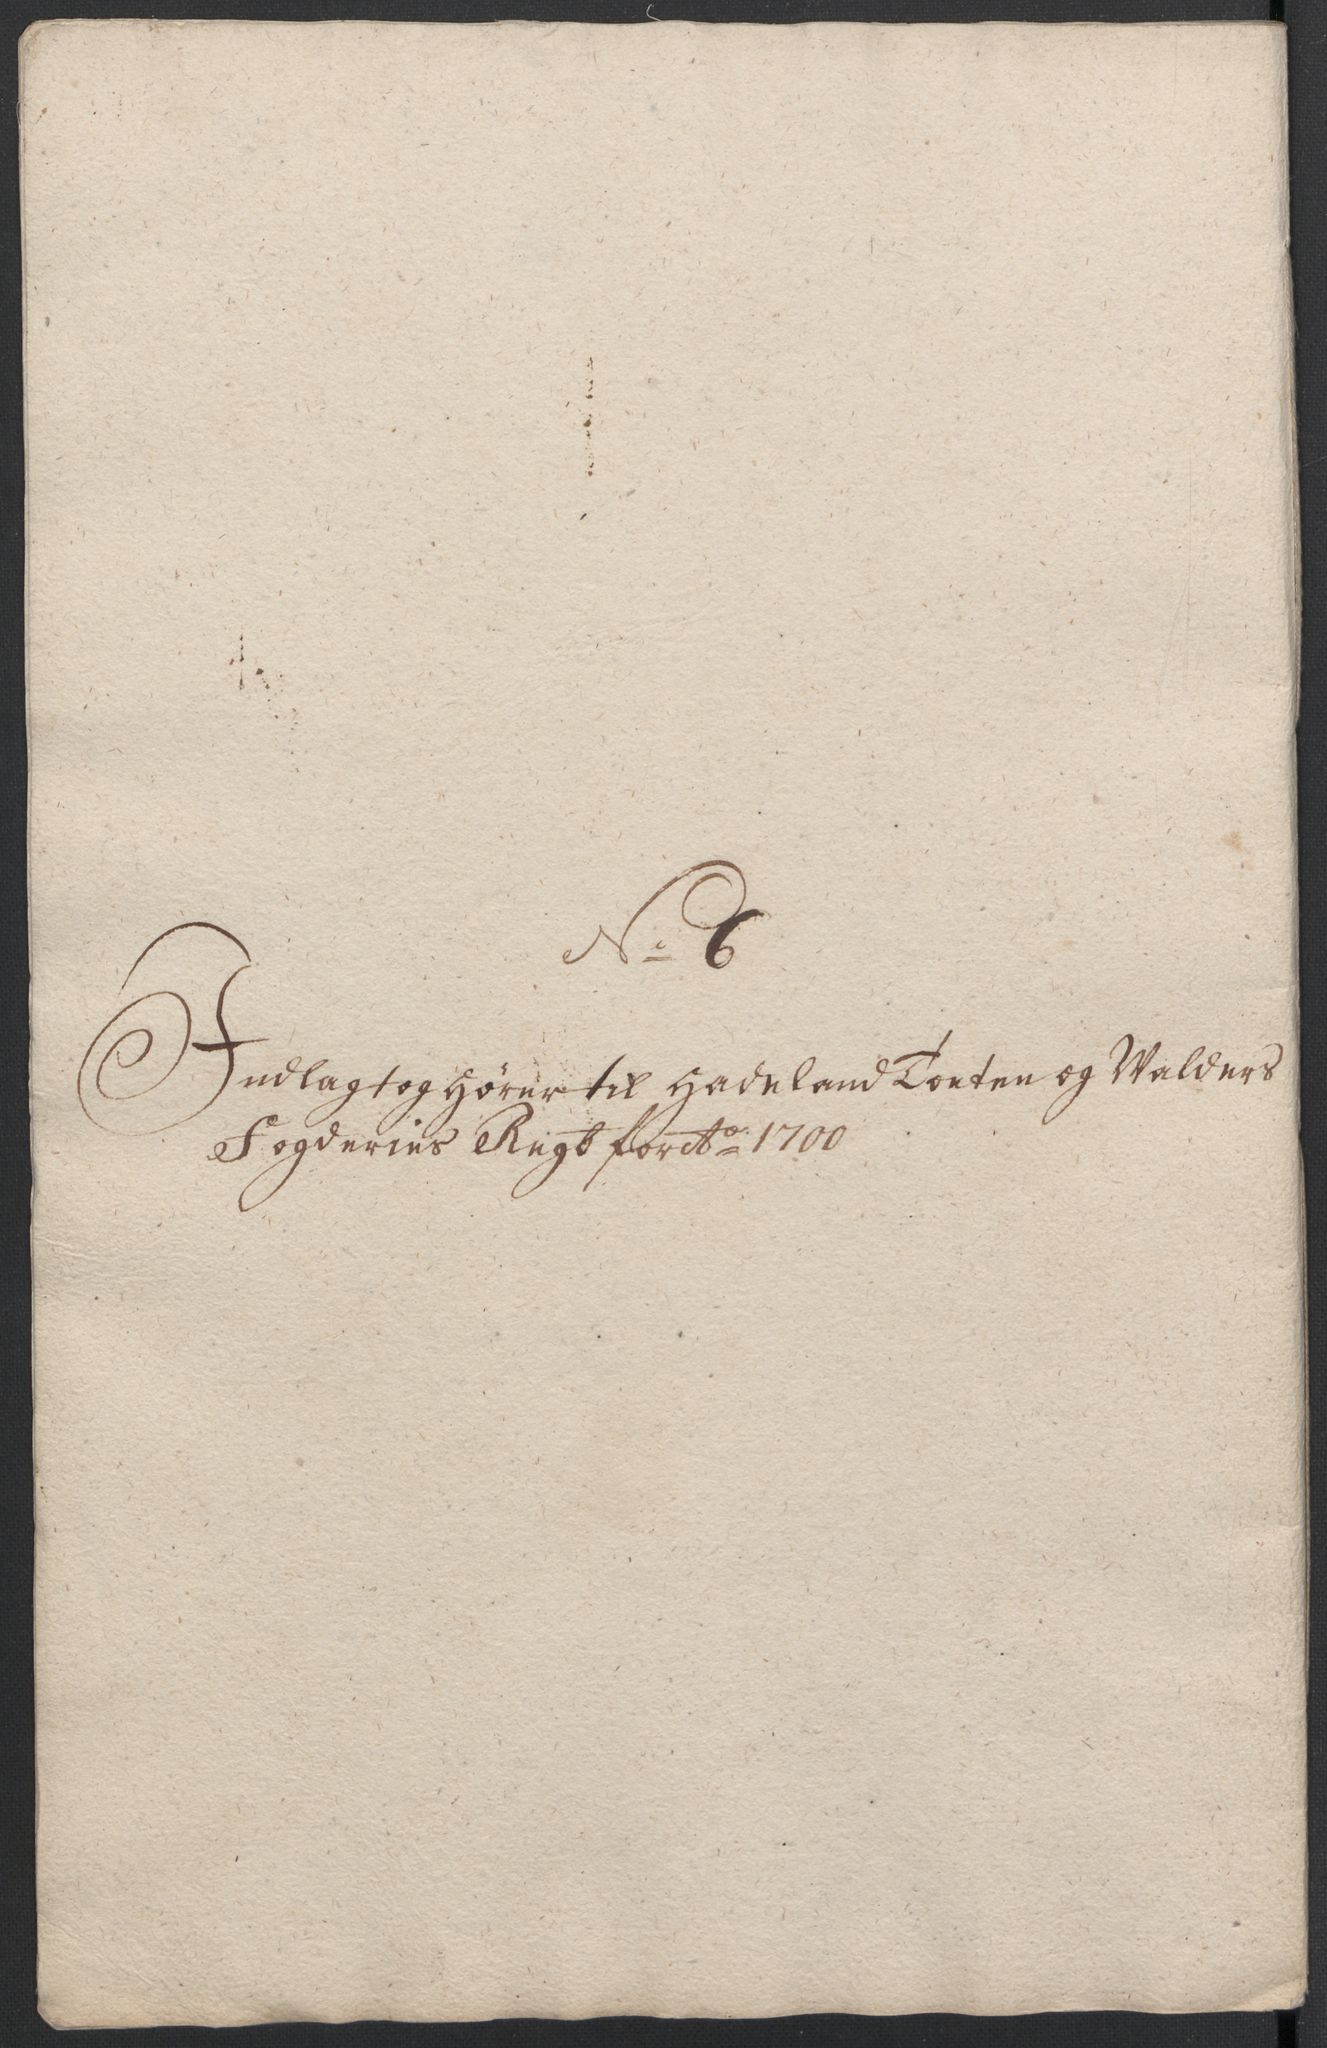 No 6
Indlagt og Hører til Hadeland Toeten og Walders
Fogderies Regb for Ao 1700